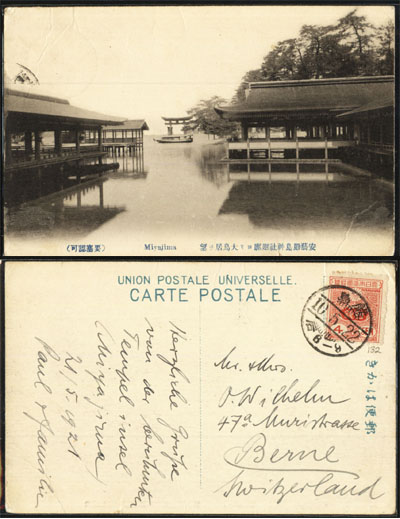 (可認塞要)
Miyajima
安藝嚴島神社廻廊ヨリ大鳥居ヲ望
UNION POSTALE UNIVERSELLE.
CARTE POSTALE
Herzliche Grüsse
von der berühmten
Tempelinsel
(Miyajima)
21/5.1921
Paul & Familie
4
嚴島
10.5.22
后6-9
182
きかは便郵
Mr. & Mrs.
O. Wilhelm
47a Muristrasse
Berne
Switzerland